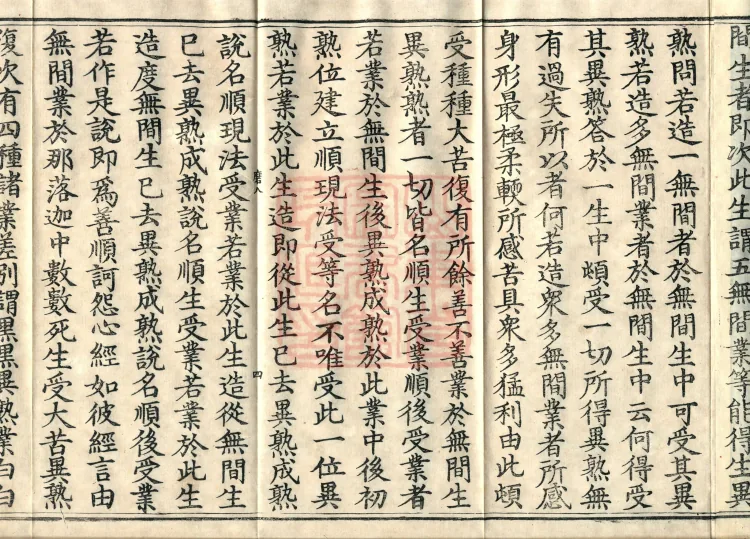 間生者即次此生謂五無間業等能得生異
熟問若造一無間者於無間生中可受其異
熟若造多無間業者於無間生中云何得受
其異熟答於一生中頓受一切所得異熟無
有過失所以者何若造衆多無間業者所感
身形最極柔輭所感苦具衆多猛利由此頓
受種種大苦復有所餘善不善業於無間生
異熟熟者一切皆名順生受業順後受業者
若業於無間生後異熟成熟於此業中後初
熟位建立順現法受等名不唯受此一位異
熟若業於此生造即從此生已去異熟成熟
說名順現法受業若業於此生造從無間生
已去異熟成熟說名順生受業若業於此生
造度無間生已去異熟成熟說名順後受業
若作是說即爲善順訶怨心經如彼經言由
無間業於那落迦中數數死生受大苦異熟
復次有四種諸業差別謂黑黑異熟業白白
四